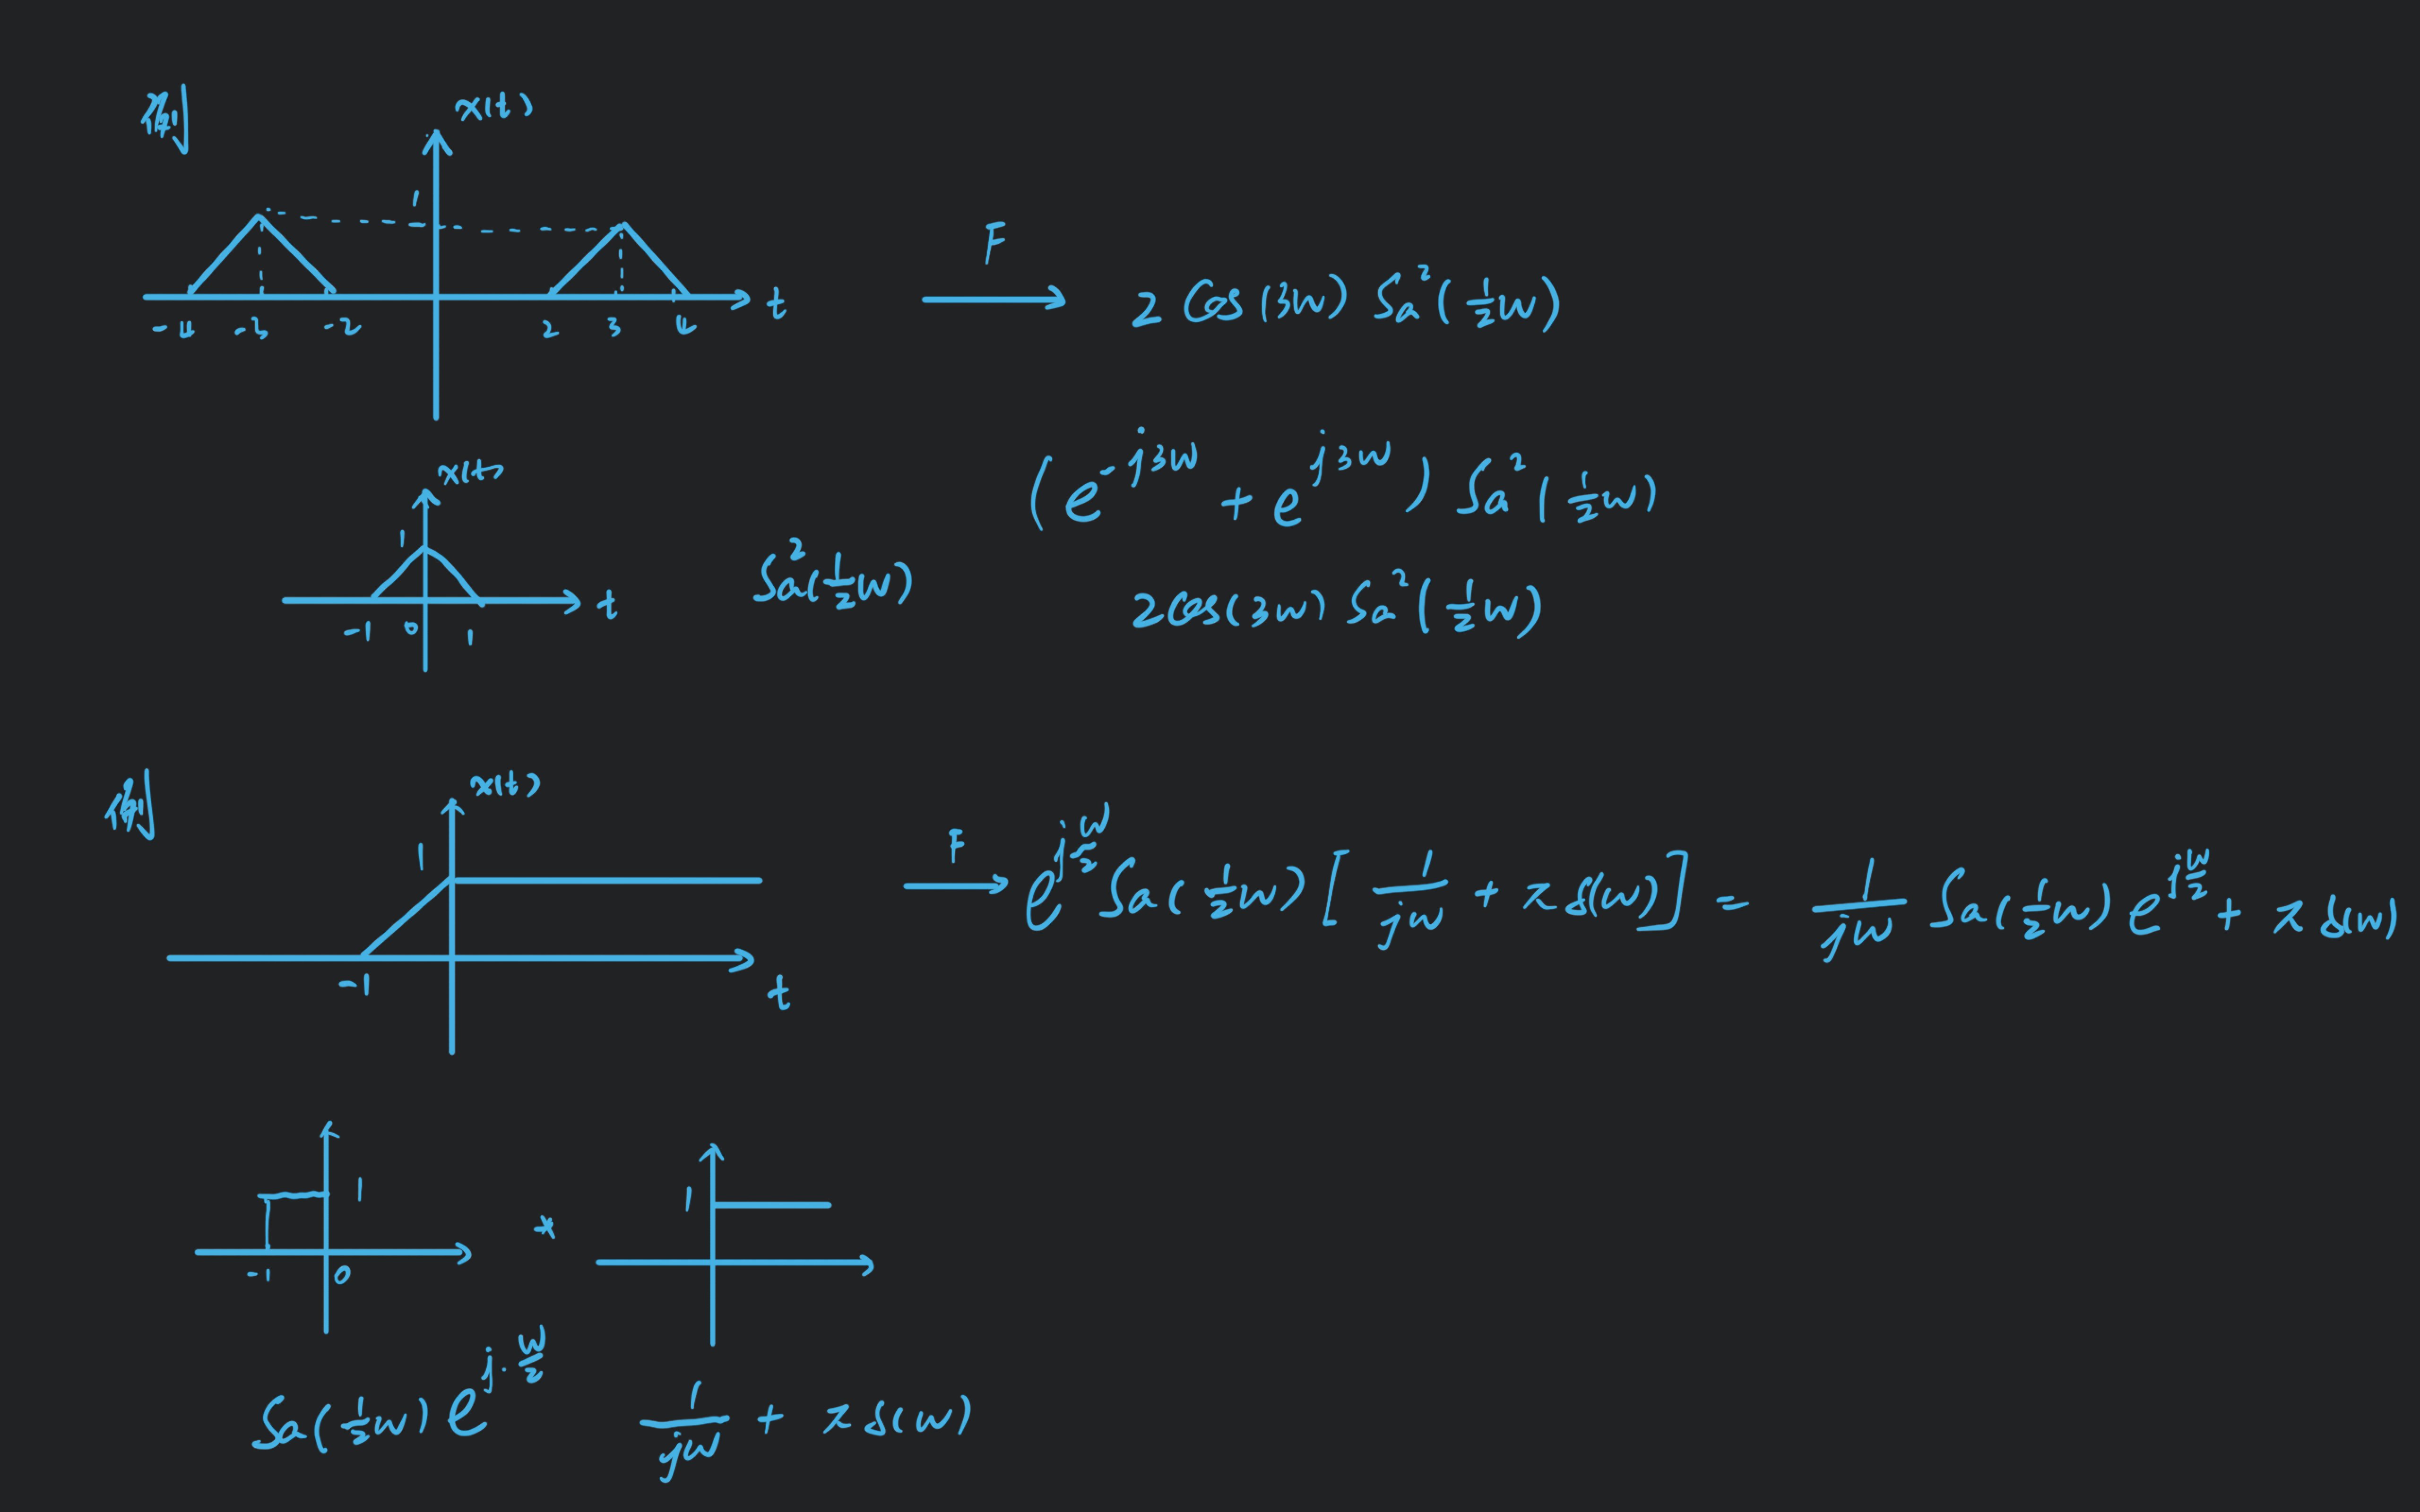 例
x(t)
1
-4 -3 -2 2 3 4 t
F
2 Cos(3w) Sa²(½w)
x(t)
1
-1 0 1 t
Sa²(½w)
(e^{-j3w} + e^{j3w}) Sa²(½w)
2Cos(3w) Sa²(½w)
例
x(t)
1
-1 t
F
e^{jw/2} Sa(½w) [1/jw + πδ(w)] = 1/jw Sa(½w) e^{jw/2} + πδ(w)
1
-1 0
*
1
Sa(½w) e^{j·w/2}
1/jw + πδ(w)